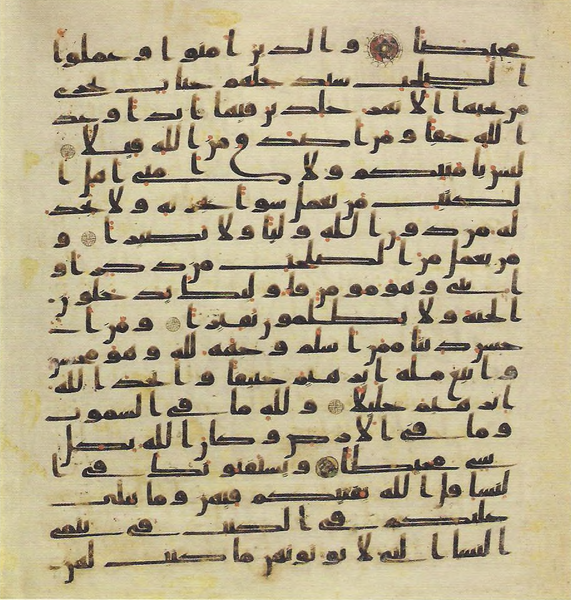 محيصا والذين امنوا وعملوا
الصلحت سندخلهم جنت تجري
من تحتها الانهر خلدين فيها ابدا وعد
الله حقا ومن اصدق من الله قيلا
ليس بامنيكم ولا اماني اهل ا
لكتب من يعمل سوا يجز به ولا يجد
له من دون الله وليا ولا نصيرا و
من يعمل من الصلحت من ذكر او
انثى وهو مومن فاولئك يدخلون
الجنة ولا يظلمون نقيرا ومن ا
حسن دينا ممن اسلم وجهه لله وهو محسن
واتبع ملة ابرهيم حنيفا واتخذ الله
ابرهيم خليلا ولله ما في السموت
وما في الارض وكان الله بكل
شي محيطا ويستفتونك في ا
لنسا قل الله يفتيكم فيهن وما يتلى
عليكم في الكتب في يتمى
النسا التي لا توتونهن ما كتب لهن